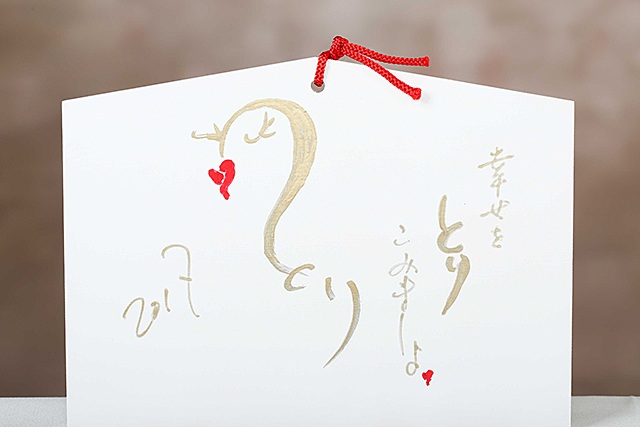 幸せを
とり
こみましょ
とり
2017